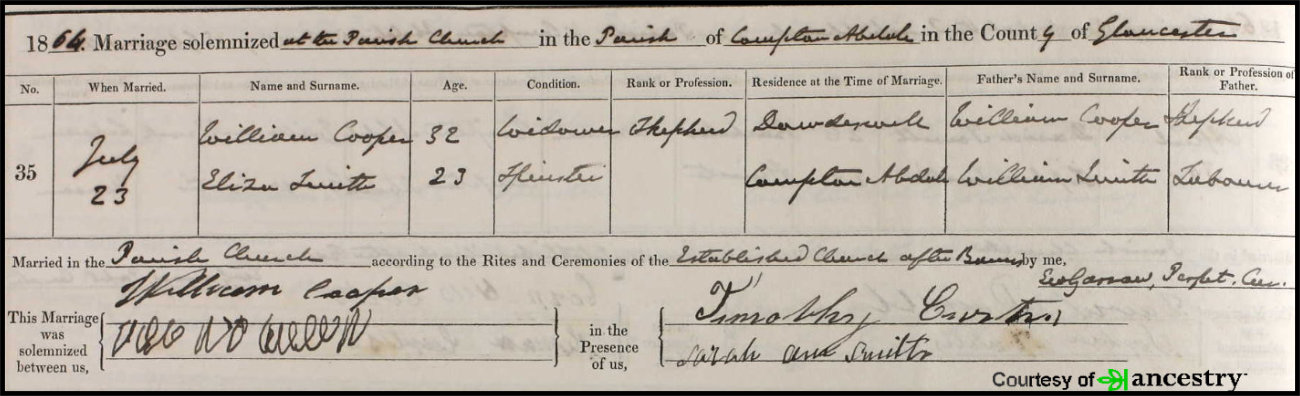 1864. Marriage solemnized at the Parish Church in the Parish of Compton Abdale in the County of Gloucester
No. When Married. Name and Surname. Age. Condition. Rank or Profession. Residence at the Time of Marriage. Father's Name and Surname. Rank or Profession of Father.
35 July 23
William Cooper 32 Widower Shepherd Dowdeswell William Cooper Shepherd
Eliza Smith 23 Spinster Compton Abdale William Smith Labourer
Married in the Parish Church according to the Rites and Ceremonies of the Established Church after Banns by me,
Perpet. Cur.
William Cooper
This Marriage was solemnized between us,
in the Presence of us,
Timothy Curtis
Sarah ann Smith
Courtesy of ancestry